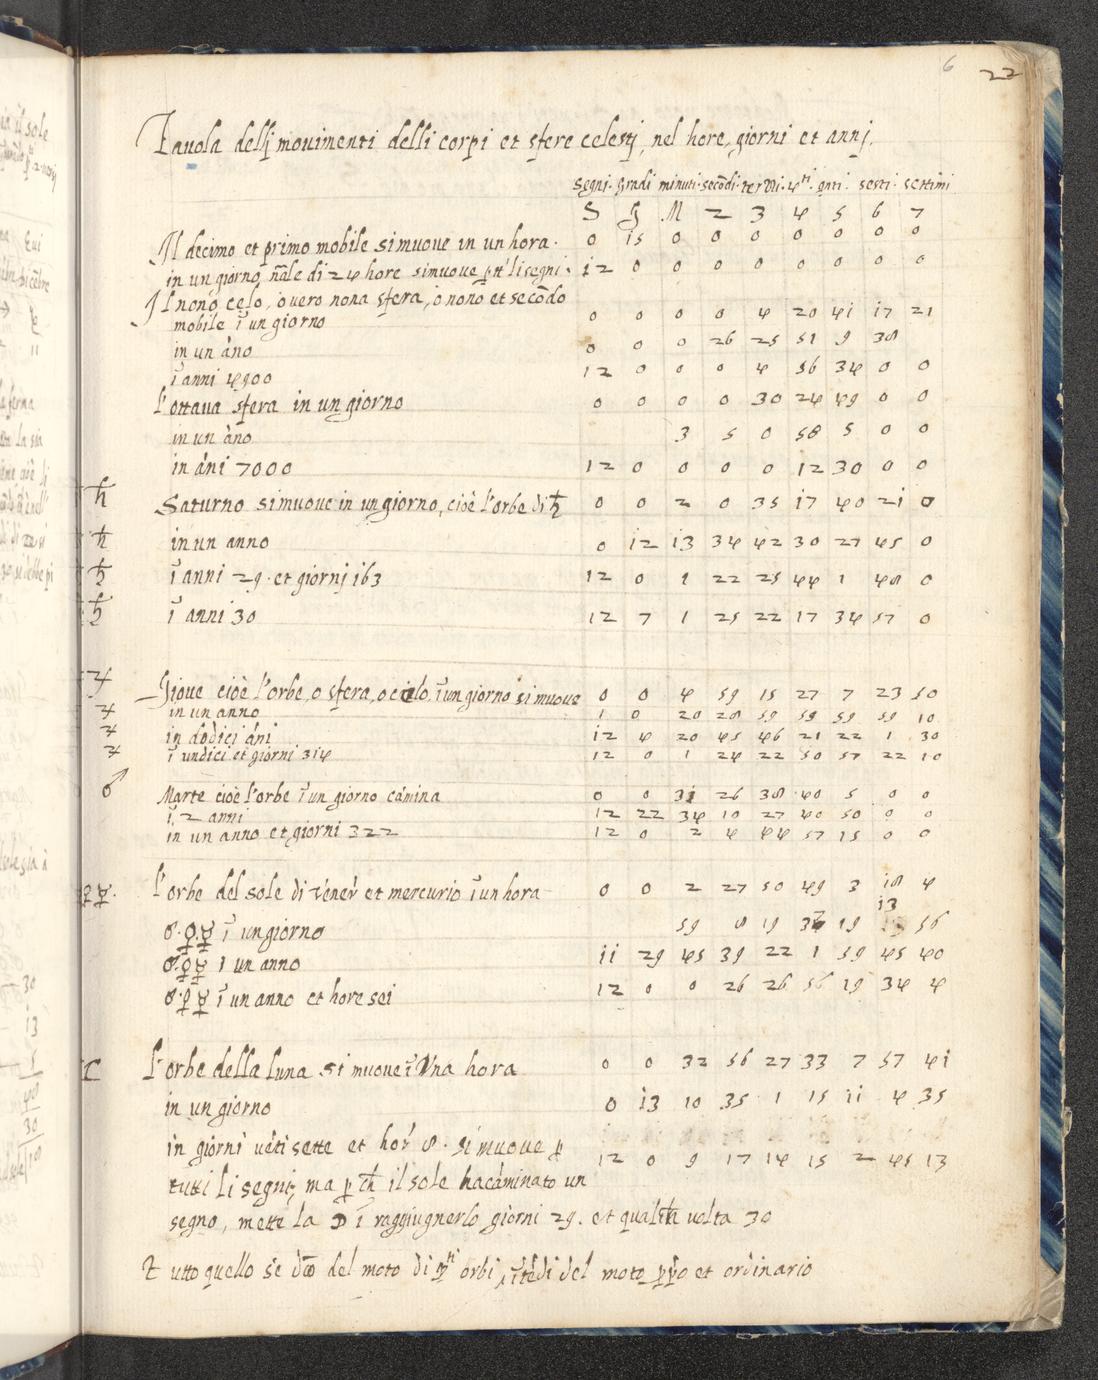 6 22
Tavola delli movimenti delli corpi et sfere celesti, nel hore, giorni et anni.
segni. gradi minuti. secõdi. terzi. 4ti. qnti. sesti. settimi
S g M 2 3 4 5 6 7
Il decimo et primo mobile si muove in un hora. 0 15 0 0 0 0 0 0 0
in un giorno nãle di 24 hore si muove p tt' li segni. 12 0 0 0 0 0 0 0 0
Il nono celo, overo nona sfera, o nono et secõdo
mobile ĩ un giorno 0 0 0 0 4 20 41 17 21
in un ãno 0 0 0 26 25 51 9 38
ĩ anni 4900 12 0 0 0 4 56 34 0 0
l'ottava sfera in un giorno 0 0 0 0 30 24 49 0 0
in un ãno 3 5 0 58 5 0 0
in ãni 7000 12 0 0 0 0 12 30 0 0
♄ Saturno si muove in un giorno, cioè l'orbe di ♄ 0 0 2 0 35 17 40 21 0
♄ in un anno 0 12 13 34 42 30 27 45 0
♄ ĩ anni 29. et giorni 163 12 0 1 22 25 44 1 48 0
♄ ĩ anni 30 12 7 1 25 22 17 34 57 0
♃ Giove cioè l'orbe, o sfera, o cielo, ĩ un giorno si muove 0 0 4 59 15 27 7 23 50
♃ in un anno 1 0 20 28 59 59 59 59 10
♃ in dodici ãni 12 4 20 45 46 21 22 1 30
♃ ĩ undici et giorni 314 12 0 1 24 22 50 57 22 10
♂ Marte cioè l'orbe ĩ un giorno cámina 0 0 31 26 38 40 5 0 0
ĩ 2 anni 12 22 34 10 27 40 50 0 0
in un anno et giorni 322 12 0 2 4 44 57 15 0 0
♀☿. l'orbe del sole di vener' et mercurio ĩ un hora 0 0 2 27 50 49 3 18 4
13
☉.♀.☿ ĩ un giorno 59 8 19 37 19 56
☉.♀☿ ĩ un anno 11 29 45 39 22 1 59 45 40
☉.♀ ☿ ĩ un anno et hore sei 12 0 0 26 26 56 19 34 4
☾ l'orbe della luna si muove ĩ Una hora 0 0 32 56 27 33 7 57 41
in un giorno 0 13 10 35 1 15 11 4 35
in giorni vẽti sette et hor' 8. si muove p 12 0 9 17 14 15 2 45 13
tutti li segni; ma p ch̃ il sole ha cáminato un
segno, mette la ☽ ĩ raggiugnerlo giorni 29. et qualch̃ volta 30
Tutto quello se dto del moto di qsti orbi, ĩtẽdi del moto pp̃o et ordinario